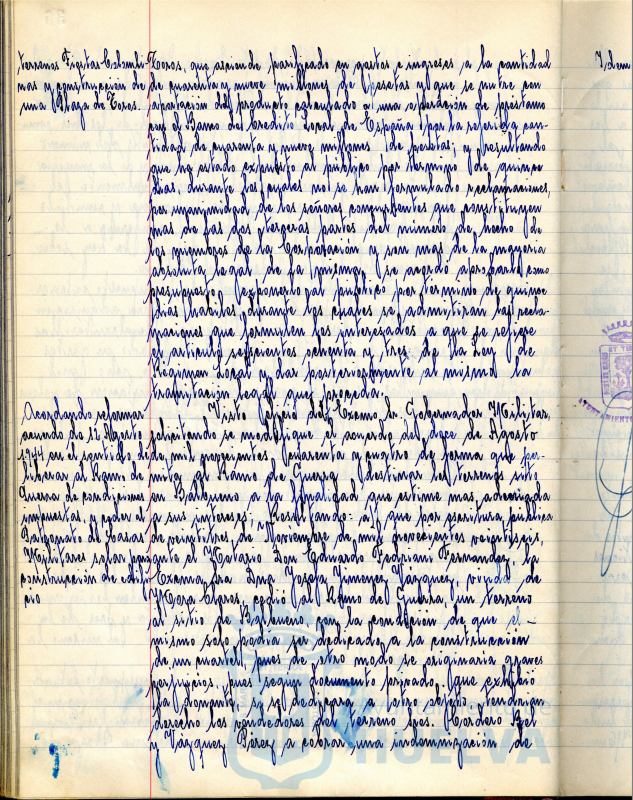 terrenos Fiestas Colombi-
nas y construcción de
una Plaza de Toros.
Toros, que asciende partificado en gastos e ingresos a la cantidad
de cuarenta y nueve millones de pesetas y que se nutre con
aportación del producto calculado a una operación de préstamo
con el Banco de Crédito Local de España por la referida can-
tidad de cuarenta y nueve millones de pesetas; y resultando
que ha estado expuesto al público por término de quince
días, durante los cuales no se han formulado reclamaciones,
por unanimidad de los señores concurrentes que constituyen
mas de las dos terceras partes del número de hecho de
los miembros de la Corporación y son mas de la mayoria
absoluta legal de la misma, se acordó aprobarlo como
presupuesto, exponerlo al público por termino de quince
dias habiles, durante los cuales se admitiran las recla-
maciones que formulen los interesados a que se refiere
el articulo seiscientos ochenta y tres de la Ley de
Regimen Local y dar posteriormente al mismo la
tramitación legal que proceda.
Acordando reformar
acuerdo de 12 Agosto
1944 en el sentido de
liberar al Ramo de
Guerra de condiciones
impuestas, y ceder al
Patronato de Casas
Militares solar para
construcción de edifi-
cio
Visto oficio del Excmo. Sr. Gobernador Militar,
solicitando se modifique el acuerdo del doce de Agosto
de mil novecientos cuarenta y cuatro de forma que per-
mita al Ramo de Guerra destinar los terrenos sito
en Balbueno a la finalidad que estime mas adecuada
a sus intereses; Resultando: a) que por escritura pública
de veintitres de Noviembre de mil novecientos veintiseis,
ante el Notario Don Eduardo Fedriani Fernandez, la
Excma. Sra. Dña. Josefa Jimenez Vazquez, viuda de
Mora Claros, cedió al Ramo de Guerra, un terreno
al sitio de Balbueno, con la condición de que el
mismo solo podia ser dedicado a la construcción
de un cuartel, pues de otro modo se originaria graves
perjuicios, pues segun documento privado, que exhibió
la donante, si se dedicara a otro objeto, tendrian
derecho los vendedores del terreno Sres. Cordero Bel
y Vázquez Pérez a cobrar una indemnización de
Idem
AYUNTAMIENTO
HUELVA